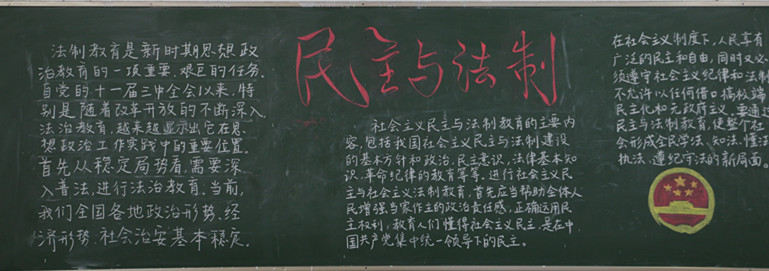 法制教育是新时期思想政
治教育的一项重要、艰巨的任务.
自党的十一届三中全会以来,特
别是随着改革开放的不断深入,
法治教育,越来越显示出它在思
想政治工作实践中的重要位置.
首先从稳定局势看,需要深
入普法,进行法治教育.当前,
我们全国各地政治形势、经
济形势、社会治安基本稳定.
民主与法制
社会主义民主与法制教育的主要内
容,包括我国社会主义民主与法制建设
的基本方针和政治,民主意识,法律基本知
识,革命纪律的教育等等.进行社会主义民
主与社会主义法制教育,首先应当帮助全体人
民增强当家作主的政治责任感,正确运用民
主权利,教育人们懂得社会主义民主,是在中
国共产党集中统一领导下的民主.
在社会主义制度下,人民享有
广泛的民主和自由,同时又必
须遵守社会主义纪律和法制
不允许以任何借口搞极端
民主化和无政府主义,要通过
民主与法制教育,使整个社
会形成全民学法、知法、懂法
执法、遵纪守法的新局面.